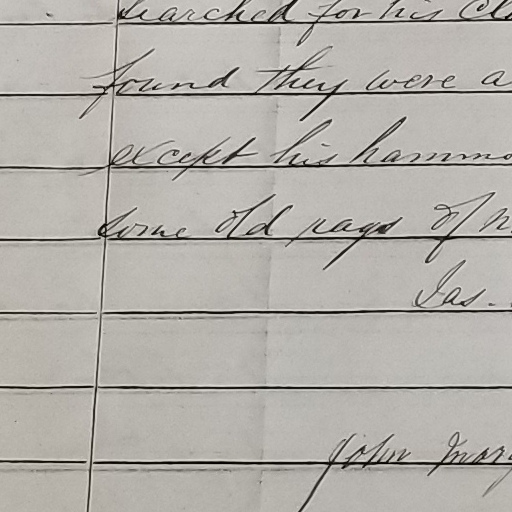 searched for his Clo
found they were a
except his hammo
some old rags of n
Jas.
John Mary